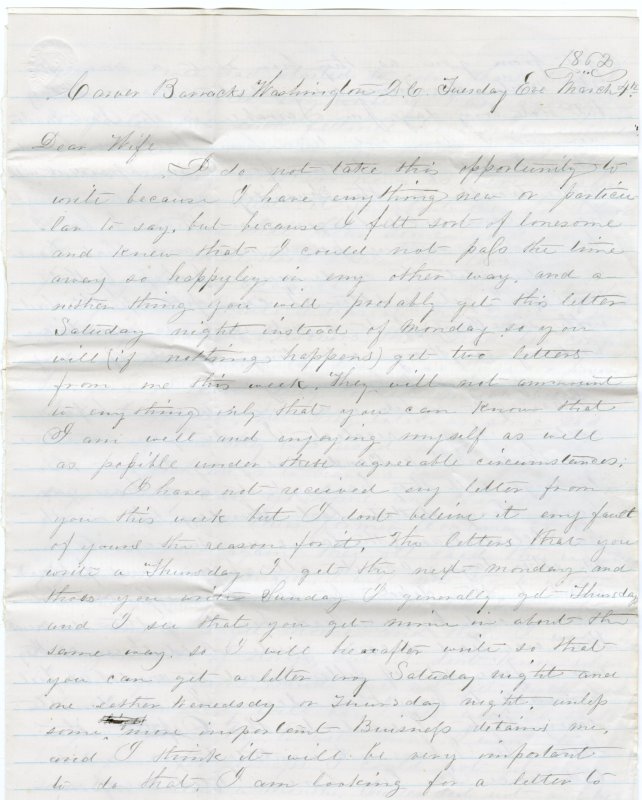 1862
Carver Barracks Washington D.C. Tuesday Eve March 4th
Dear Wife
I do not take this opportunity to
write because I have anything new or particu
lar to say, but because I felt sort of lonesome
and knew that I could not pass the time
away so happyley in any other way, and a
nother thing you will probably get this letter
Saturday night instead of Monday so you
will (if nothing happens) get two letters
from me this week. They will not amount
to anything only that you can know that
I am well and enjoying myself as well
as possible under these agreeable circumstances.
I have not received any letter from
you this week but I dont believe it any fault
of yours the reason for it. The letters that you
write a Thursday I get the next Monday and
those you write Sunday I generally get Thursday
and I see that you get mine in about the
same way. so I will hereafter write so that
you can get a letter any Saturday night and
one either Wenedsday or Thursday night, unless
some more important Buisness detains me.
and I think it will be very important
to do that. I am looking for a letter to